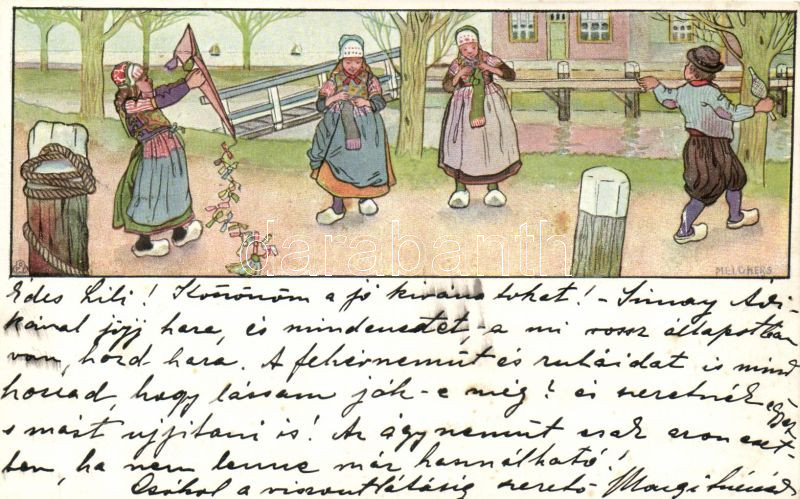 MELCHERS
darabanth
Édes Lili! Köszönöm a jó kivánatokat! - Simay Adi-
kával jöjj haza, és mindenedet, a mi rossz állapotban
van, hozd haza. A fehérneműt és ruháidat is mind
hozzad, hogy lássam jók-e még! és szeretnék egyet
s mást ujjitani is! Az ágyneműt csak azon eset-
ben, ha nem lenne már használható!
Csókol a viszontlátásig szerető Margi